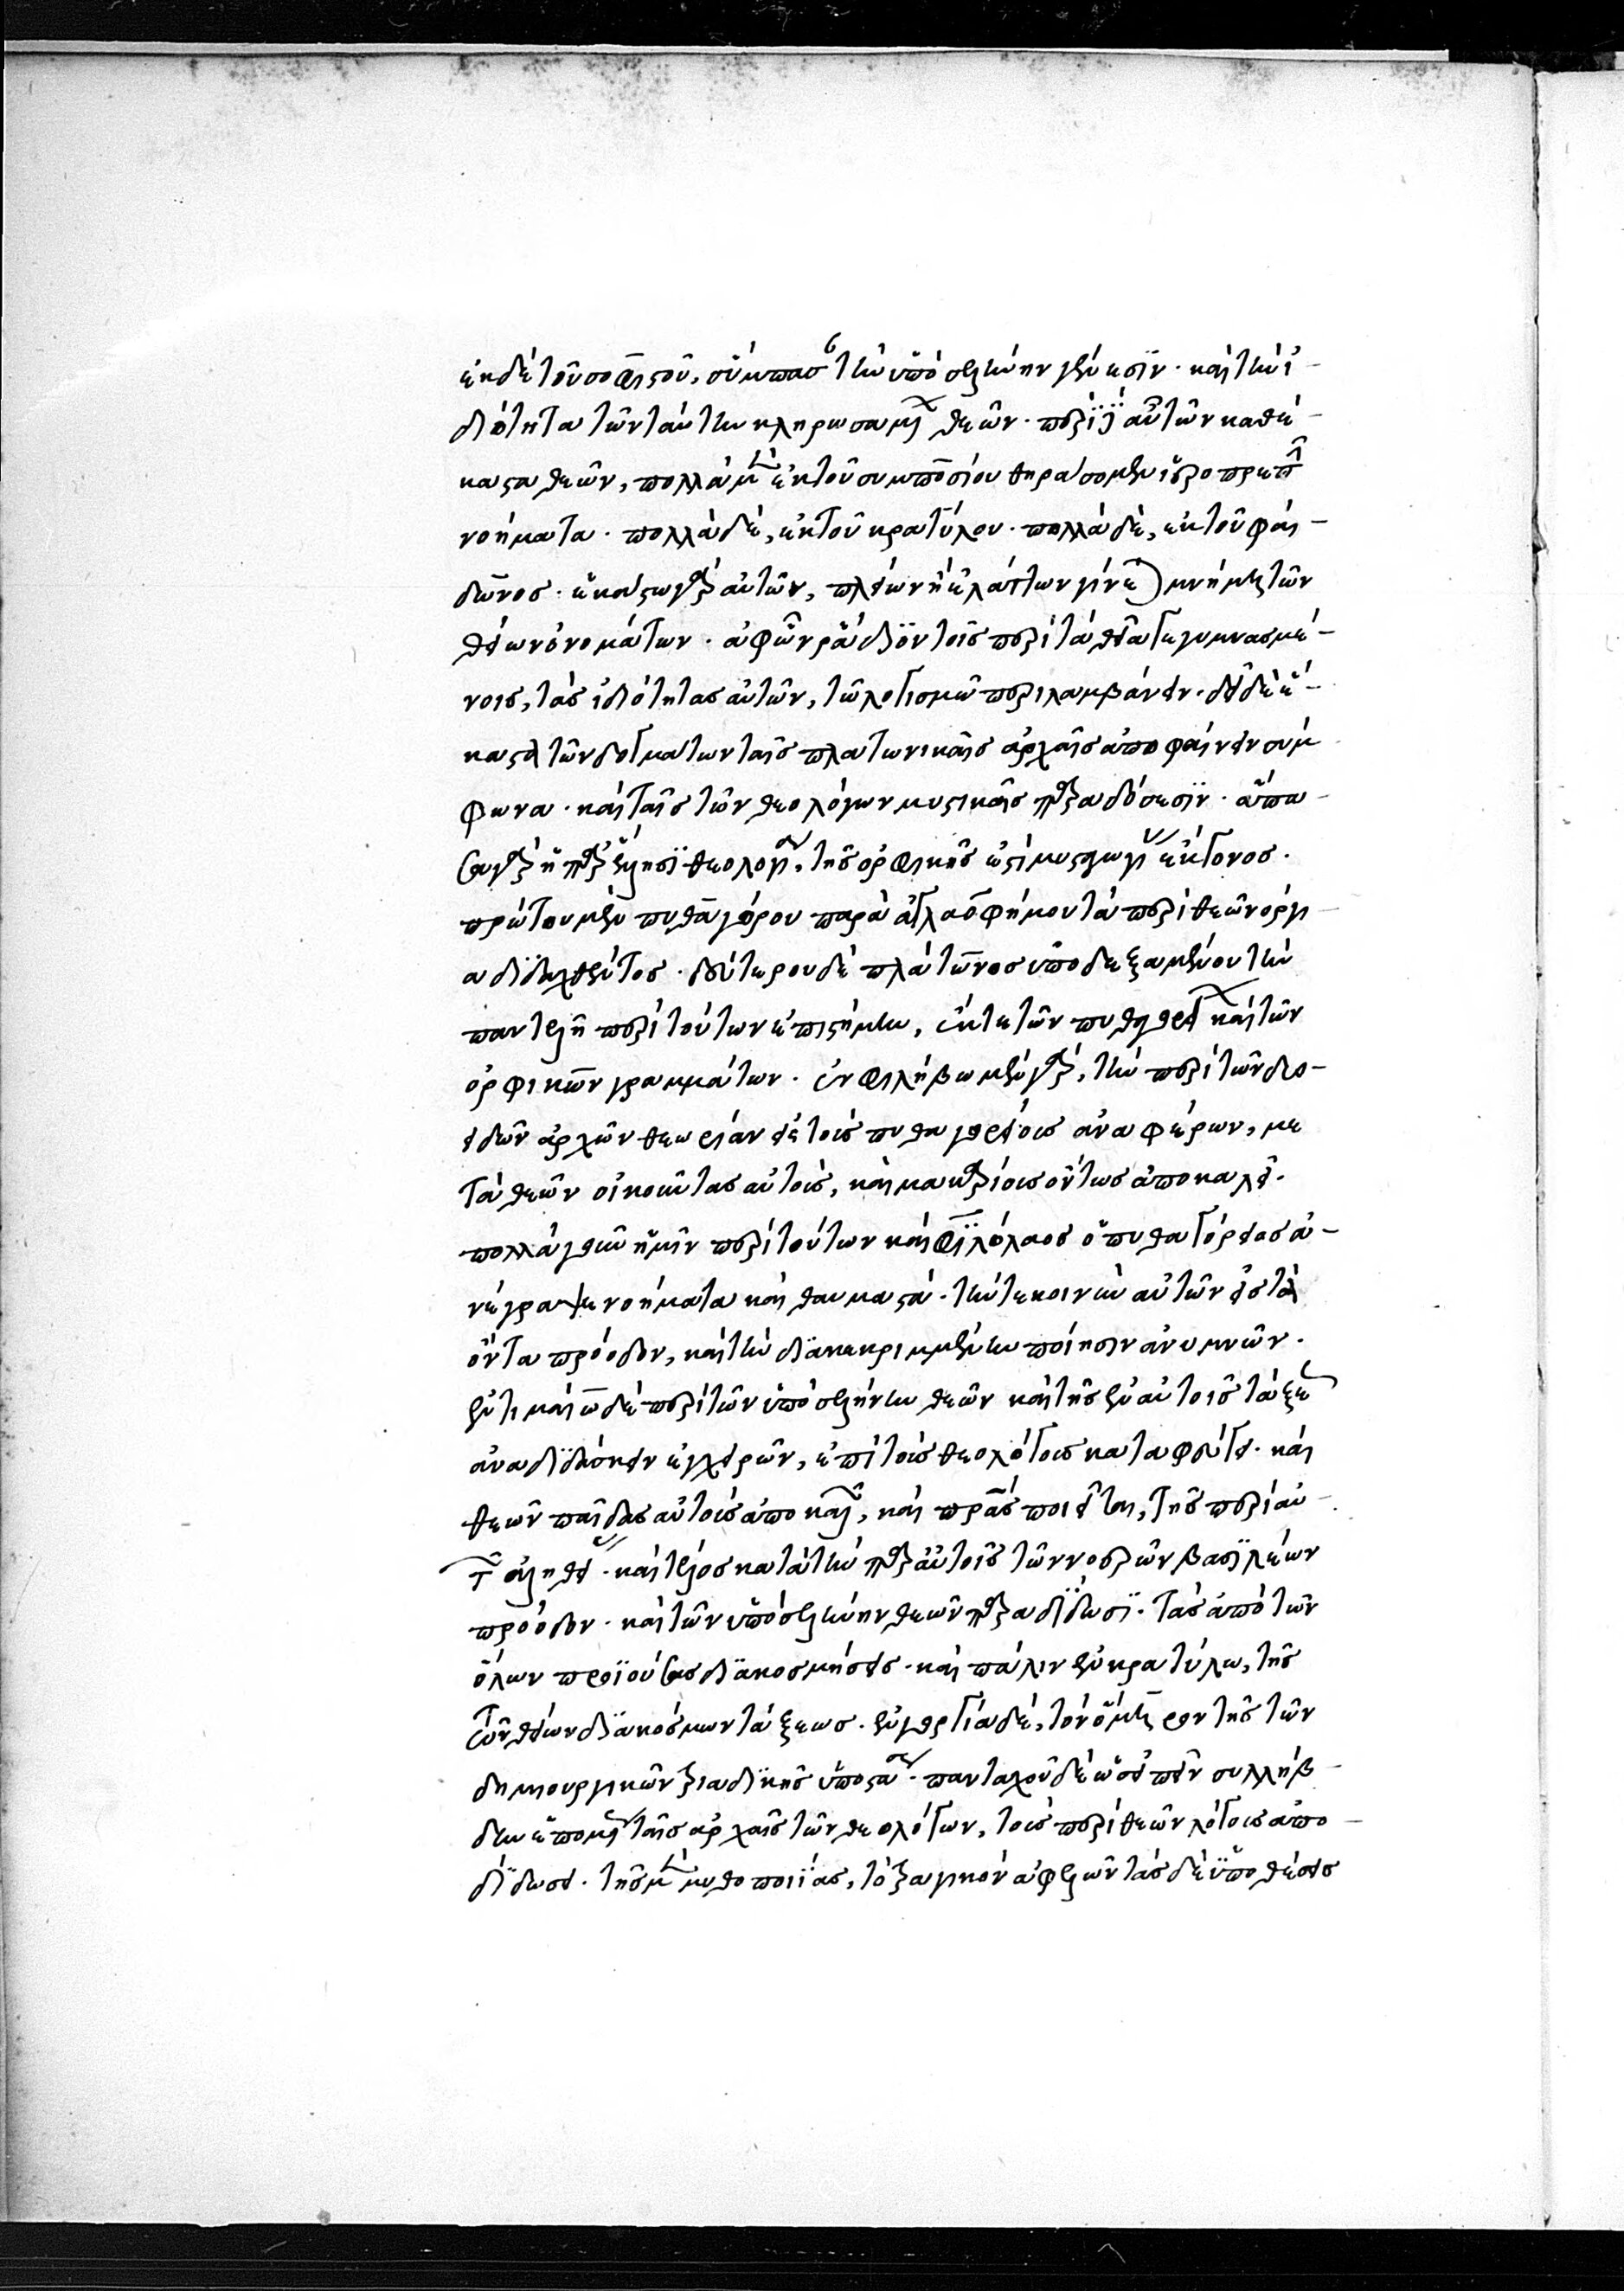 ἐκ δὲ τοῦ σοφιστοῦ, σύμπασαν τὴν ὑπὸ σελήνην γένεσιν· καὶ τὴν ἰ-
διότητα τῶν ταύτην κληρωσαμένων θεῶν· περὶ δὲ αὐτῶν καθέ-
καστα θεῶν, πολλὰ μὲν ἐκ τοῦ συμποσίου θηράσομεν ἱεροπρεπῆ
νοήματα· πολλὰ δὲ, ἐκ τοῦ κρατύλου· πολλὰ δὲ, ἐκ τοῦ φαί-
δωνος· ἑκάστω γὰρ αὐτῶν, πλείων ἢ ἐλάττων γίνεται μνήμη τῶν
θείων ὀνομάτων· ἀφ' ὧν ῥάδιον τοῖς περὶ τὰ θεῖα γεγυμνασμέ-
νοις, τὰς ἰδιότητας αὐτῶν, τῶ λογισμῶ περιλαμβάνειν. δεῖ δὲ ἕ-
καστα τῶν δογμάτων ταῖς πλατωνικαῖς ἀρχαῖς ἀποφαίνειν σύμ
φωνα· καὶ ταῖς τῶν θεολόγων μυστικαῖς παραδόσεσιν· ἅπα-
σα γὰρ ἡ παρ' ἕλλησι θεολογία, τῆς ὀρφικῆς ἐστὶ μυσταγωγίας ἔκγονος.
πρώτου μὲν πυθαγόρου παρὰ ἀγλαοφήμου τὰ περὶ θεῶν ὄργι-
α διδαχθέντος· δευτέρου δὲ πλάτωνος ὑποδεξαμένου τὴν
παντελῆ περὶ τούτων ἐπιστήμην, ἔκ τε τῶν πυθαγορείων καὶ τῶν
ὀρφικῶν γραμμάτων. ἐν φιλήβω μὲν γὰρ, τὴν περὶ τῶν δύο-
ειδῶν ἀρχῶν θεωρίαν εἰς τοὺς πυθαγορείους ἀναφέρων, με
τὰ θεῶν οἰκοῦντας αὐτοὺς, καὶ μακαρίους ὄντως ἀποκαλεῖ.
πολλὰ γοῦν ἡμῖν περὶ τούτων καὶ φιλόλαος ὁ πυθαγόρειος ἀ-
νέγραψε νοήματα καὶ θαυμαστά· τήν τε κοινὴν αὐτῶν εἰς τὰ
ὄντα πρόοδον, καὶ τὴν διακεκριμμένην ποίησιν ἀνυμνῶν.
ἐν τιμαίω δὲ περὶ τῶν ὑπὸ σελήνην θεῶν καὶ τῆς ἐν αὐτοῖς τάξεως
ἀναδιδάσκειν ἐγχειρῶν, ἐπὶ τοὺς θεολόγους καταφεύγει· καὶ
θεῶν παῖδας αὐτοὺς ἀποκαλεῖ, καὶ πρας ποιεῖται, τῆς περὶ αὐ-
τῶν ἀληθείας· καὶ τέλος κατὰ τὴν παρ' αὐτοῖς τῶν νοερῶν βασιλέων
πρόοδον· καὶ τῶν ὑπὸ σελήνην θεῶν παραδίδωσι· τὰς ἀπὸ τῶν
ὅλων προϊούσας διακοσμήσεις· καὶ πάλιν ἐν κρατύλω, τῆς
τῶν θείων διακόσμων τάξεως. ἐν γοργία δὲ, τὸν ὅμηρον τῆς τῶν
δημιουργικῶν τριαδικῆς ὑποστάσεως. πανταχοῦ δὲ ὡς εἰπεῖν συλλήβ-
δην ἑπομένως ταῖς ἀρχαῖς τῶν θεολόγων, τοὺς περὶ θεῶν λόγους ἀπο-
δίδωσι. τῆς μὲν μυθοποιίας, τὸ τραγικὸν ἀφελὼν τὰς δὲ ὑποθέσεις